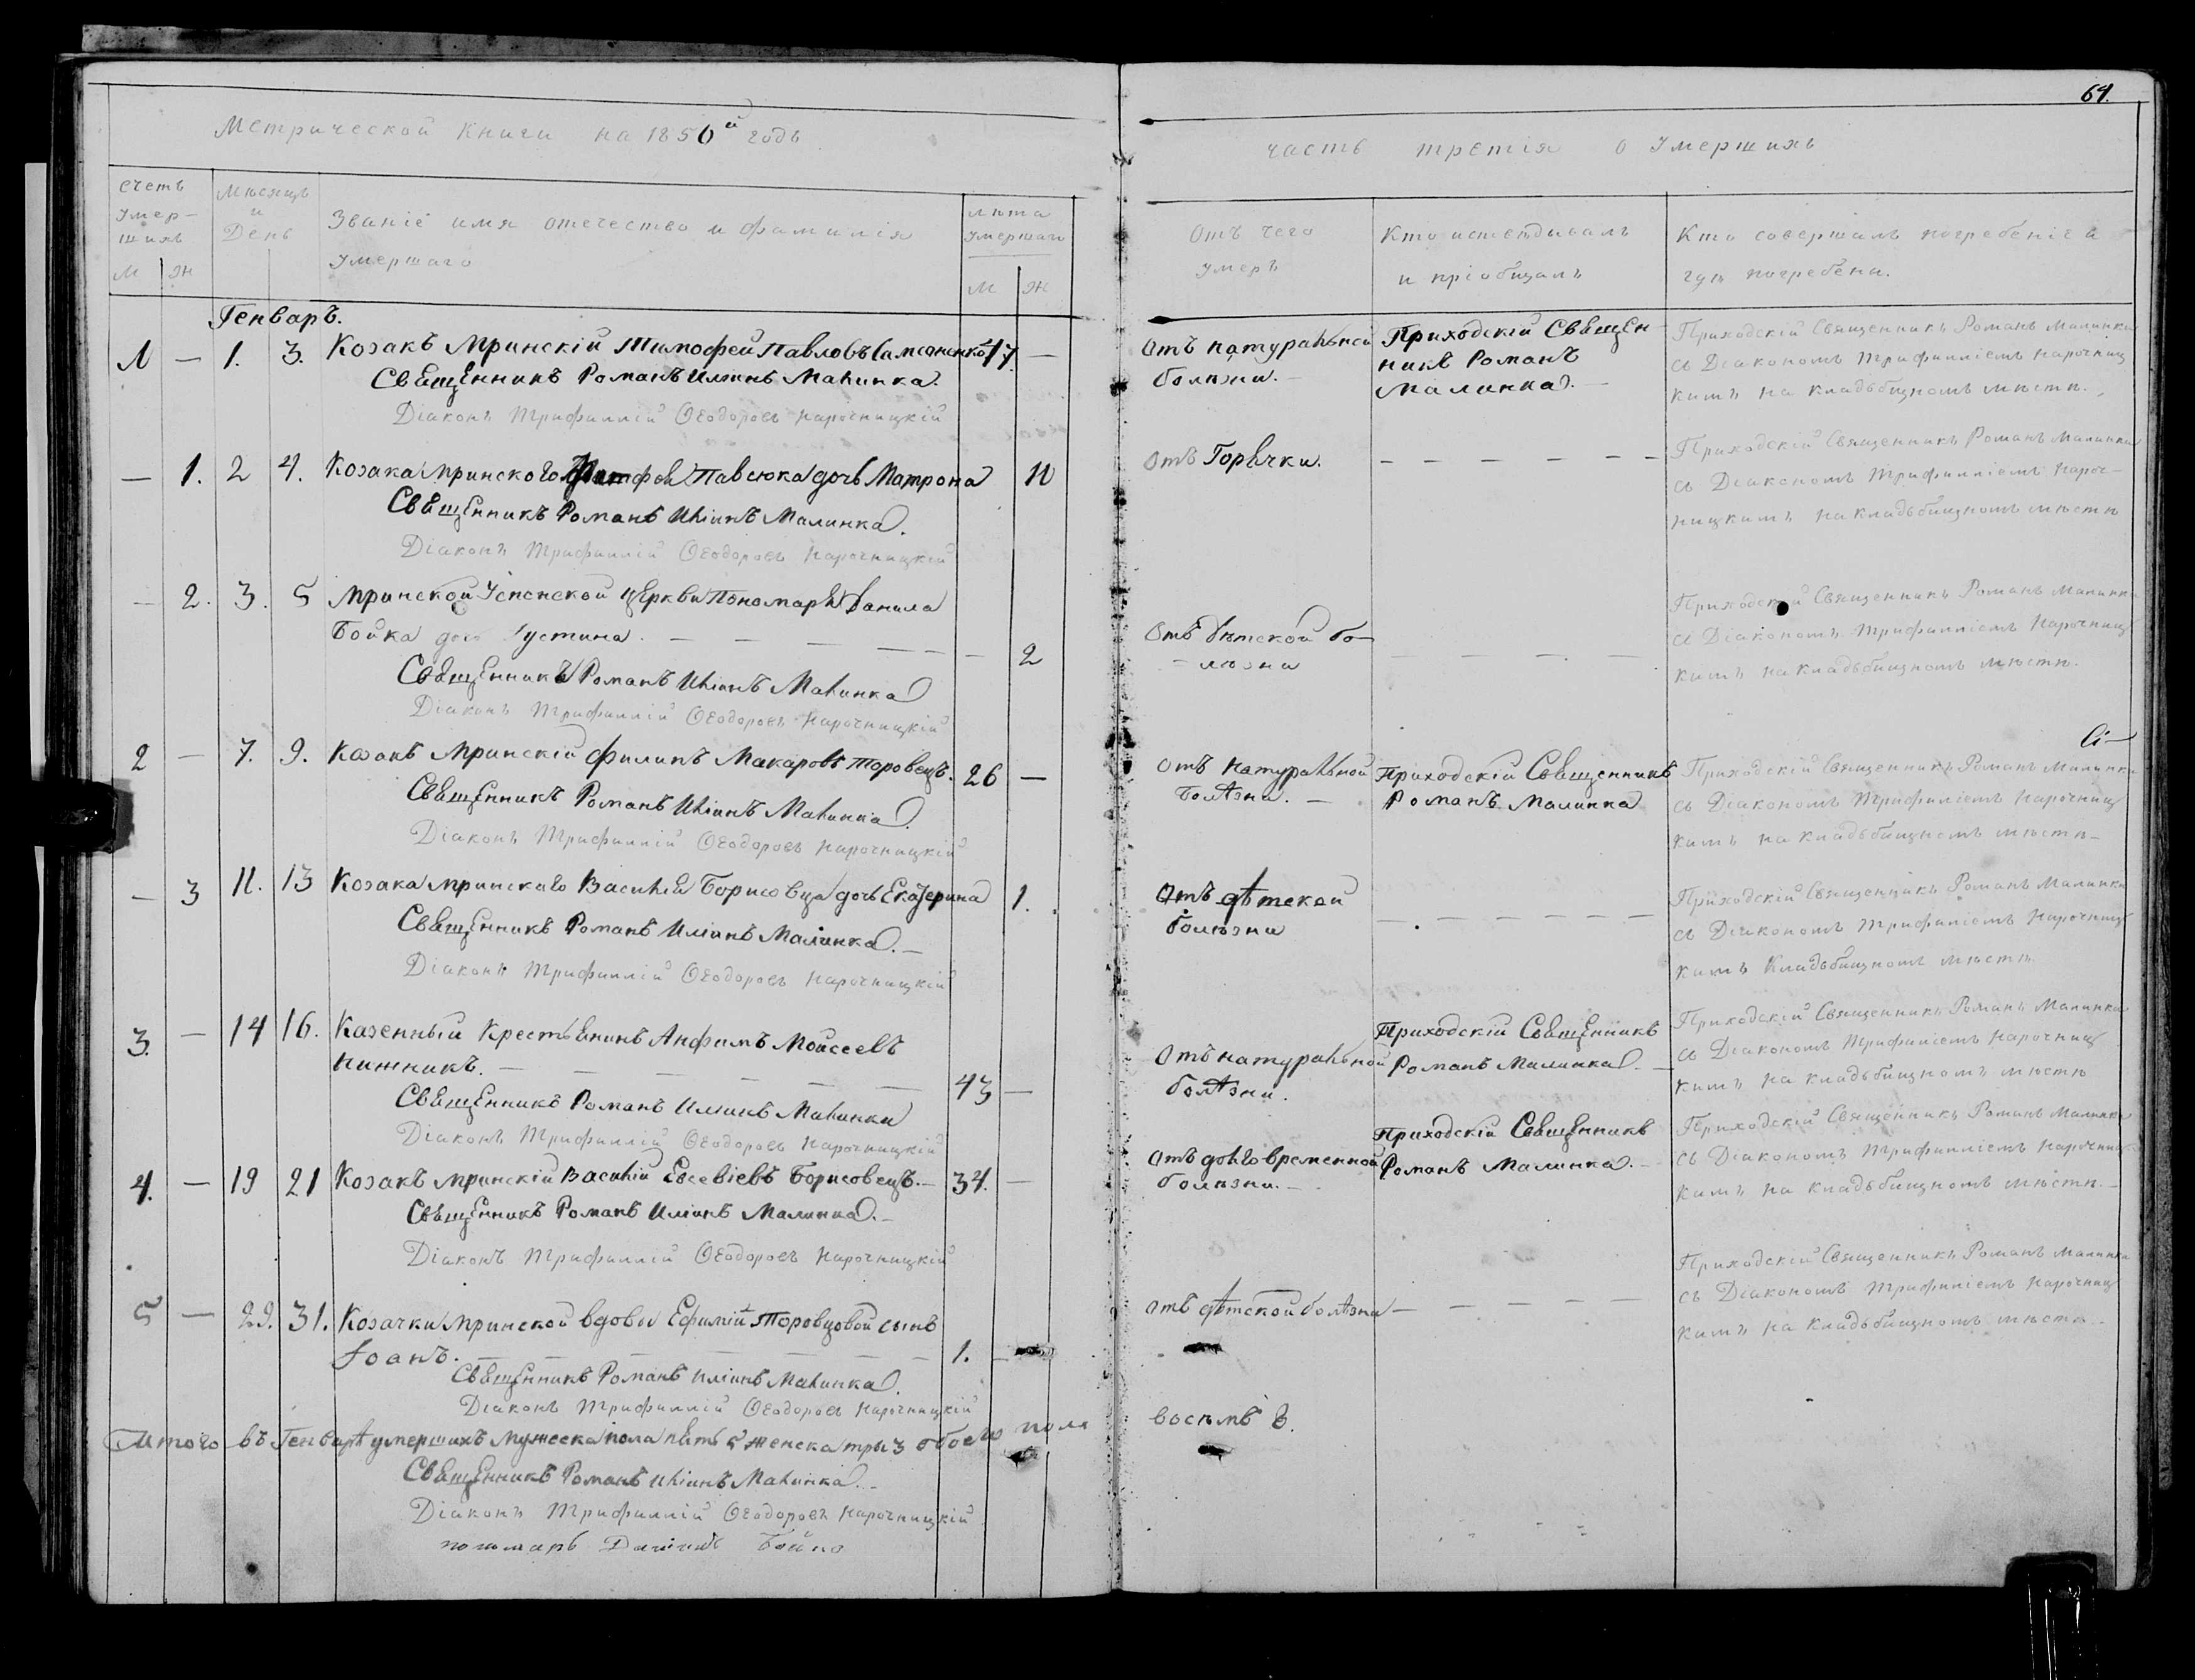 64.
Метрической Книги на 1850й годъ
часть третія о Умершихъ
Счетъ Умер-шихъ
М Ж
Мѣсяцъ и День
Званіе имя отечество и фамилія
Умершаго
лѣта Умершаго
М Ж
Отъ чего
Умеръ
Кто исповѣдывалъ
и пріобщалъ
Кто совершалъ погребеніе и
гдѣ погребены.
Генваръ.
1 — 1. 3. Козакъ Мринскій Тимофей Павловъ 47. —
Священникъ Романъ Иліинъ Малинка.
Діаконъ Трифиллій Ѳеодоровъ Нарочницкій
Отъ натуральной
болѣзни. —
Приходскій Священ
никъ Романъ
Малинка. —
Приходскій Священникъ Романъ Малинка
съ Діакономъ Трифилліемъ Нарочниц
кимъ на Кладьбищномъ мѣстѣ.
— 1. 2 4. Козака Мринского Павсюка дочь Матрона 11
Священникъ Романъ Иліинъ Малинка.
Діаконъ Трифиллій Ѳеодоровъ Нарочницкій
Отъ Горячки. — — — — — —
Приходскій Священникъ Романъ Малинка
съ Діакономъ Трифилліемъ Нароч-
ницкимъ на кладьбищномъ мѣстѣ
— 2. 3. 5 Мринской Успенской Церкви Пономаря Данила
Бойка дочь Іустина. — — — — — 2
Священникъ Романъ Иліинъ Малинка
Діаконъ Трифиллій Ѳеодоровъ Нарочницкій
Отъ дѣтской бо-
лѣзни — — — —
Приходскій Священникъ Романъ Малинка
съ Діакономъ Трифилліемъ Нарочниц
кимъ на кладьбищномъ мѣстѣ.
2 — 7. 9. Козакъ Мринскій Филипъ Макаровъ Торовецъ. 26 —
Священникъ Романъ Иліинъ Малинка.
Діаконъ Трифиллій Ѳеодоровъ Нарочницкій
Отъ Натуральной
Болѣзни. —
Приходскій Священникъ
Романъ Малинка
Приходскій Священникъ Романъ Малинка
съ Діакономъ Трифиліемъ Нарочниц
кимъ на кладьбищномъ мѣстѣ—
— 3 11. 13 Козака Мринскаго Василія Борисовца дочь Екатерина 1.
Священникъ Романъ Иліинъ Малинка. —
Діаконъ Трифиллій Ѳеодоровъ Нарочницкій
Отъ дѣтской
болѣзни — — — — — —
Приходскій Священникъ Романъ Малинка
съ Діакономъ Трифиліемъ Нарочниц
кимъ Кладьбищномъ мѣстѣ
3. — 14 16. Казенный Крестьянинъ Анфимъ Моисеевъ
Нижникъ. — — — — — — 43 —
Священникъ Романъ Иліинъ Малинка
Діаконъ Трифиллій Ѳеодоровъ Нарочницкій
Отъ натуральной
болѣзни.
Приходскій Священникъ
Романъ Малинка. —
Приходскій Священникъ Романъ Малинка
съ Діакономъ Трифиліемъ Нарочниц
кимъ на кладьбищномъ мѣстѣ
4. — 19 21 Козакъ Мринскій Василій Евсевіевъ Борисовецъ. — 34. —
Священникъ Романъ Иліинъ Малинка. —
Діаконъ Трифиллій Ѳеодоровъ Нарочницкій
Отъ долговременной
болѣзни. —
Приходскій Священникъ
Романъ Малинка. —
Приходскій Священникъ Романъ Малинка
съ Діакономъ Трифилліемъ Нарочниц
кимъ на кладьбищномъ мѣстѣ. —
5 — 29. 31. Козачки Мринской вдовы Ефиміи Торовцовой сынъ
Іоанъ. — — — — — — 1. —
Священникъ Романъ Иліинъ Малинка.
Діаконъ Трифиллій Ѳеодоровъ Нарочницкій
Отъ дѣтской болѣзни — — — — —
Приходскій Священникъ Романъ Малинка
съ Діакономъ Трифиліемъ Нарочниц
кимъ на кладьбищномъ мѣстѣ —
Итого въ Генварѣ умершихъ мужеска пола пять 5 женска три 3 обоего пола восемь 8.
Священникъ Романъ Иліинъ Малинка. —
Діаконъ Трифиллій Ѳеодоровъ Нарочницкій
пономарь Даніилъ Бойко